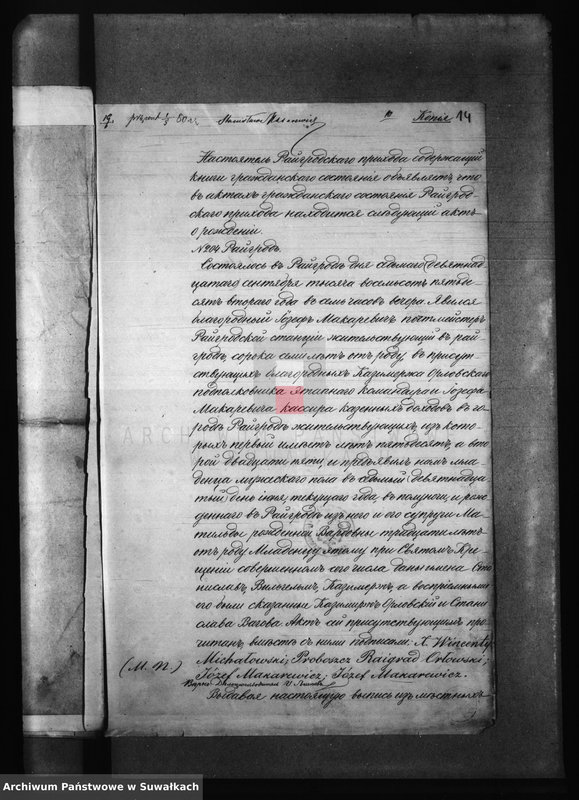 Stanisław Makarewicz
Копія 14
Настоятель Райгродскаго прихода содержащій
книги гражданскаго состоянія объявляетъ что
въ актахъ гражданскаго состоянія Райгрод-
скаго прихода находится слѣдующій актъ
о рожденіи.
№204 Райгродъ.
Состоялось въ Райгродѣ дня седьмаго (девятнад-
цатаго) сентября тысяча восемьсотъ пятьде-
сятъ втораго года въ семь часовъ вечера. Явился
благородный Іозефъ Макаревичъ почтмейстръ
Райгродской станціи жительствующій въ рай-
гродѣ, сорока семи лѣтъ отъ роду, въ присут-
ствующихъ благородныхъ Казимержа Орловскаго
подполковника этапнаго командира и Іозефа
Макаревича кассира казенныхъ доходовъ въ го-
родѣ Райгродѣ жительствующихъ, изъ кото-
рыхъ первый имѣетъ лѣтъ пятьдесятъ, а вто-
рой двадцать пять, и предъявилъ намъ мла-
денца мужескаго пола въ седьмый (девятнадца-
тый) день іюня, текущаго года, въ полуночи, и рож-
деннаго въ Райгродѣ изъ него и его супруги Ма-
тильды рожденной Варовны тридцати лѣтъ
отъ роду. Младенцу этому при Святомъ Кре-
щеніи совершенномъ сего числа даны имена Ста-
ниславъ, Вильгельмъ, Казимержъ, а воспріемниками
его были сказанные Казимиръ Орловскій и Стани-
слава Варова. Актъ сей присутствующимъ про-
читанъ, вмѣстѣ съ ними подписали. X. Wincenty
Michałowski; Proboszcz Raigrad Orłowski;
(М. П.) Józef Makarewicz; Józef Makarewicz.
Выдавая настоящую выпись изъ мѣстныхъ
ARCH
Archiwum Państwowe w Suwałkach